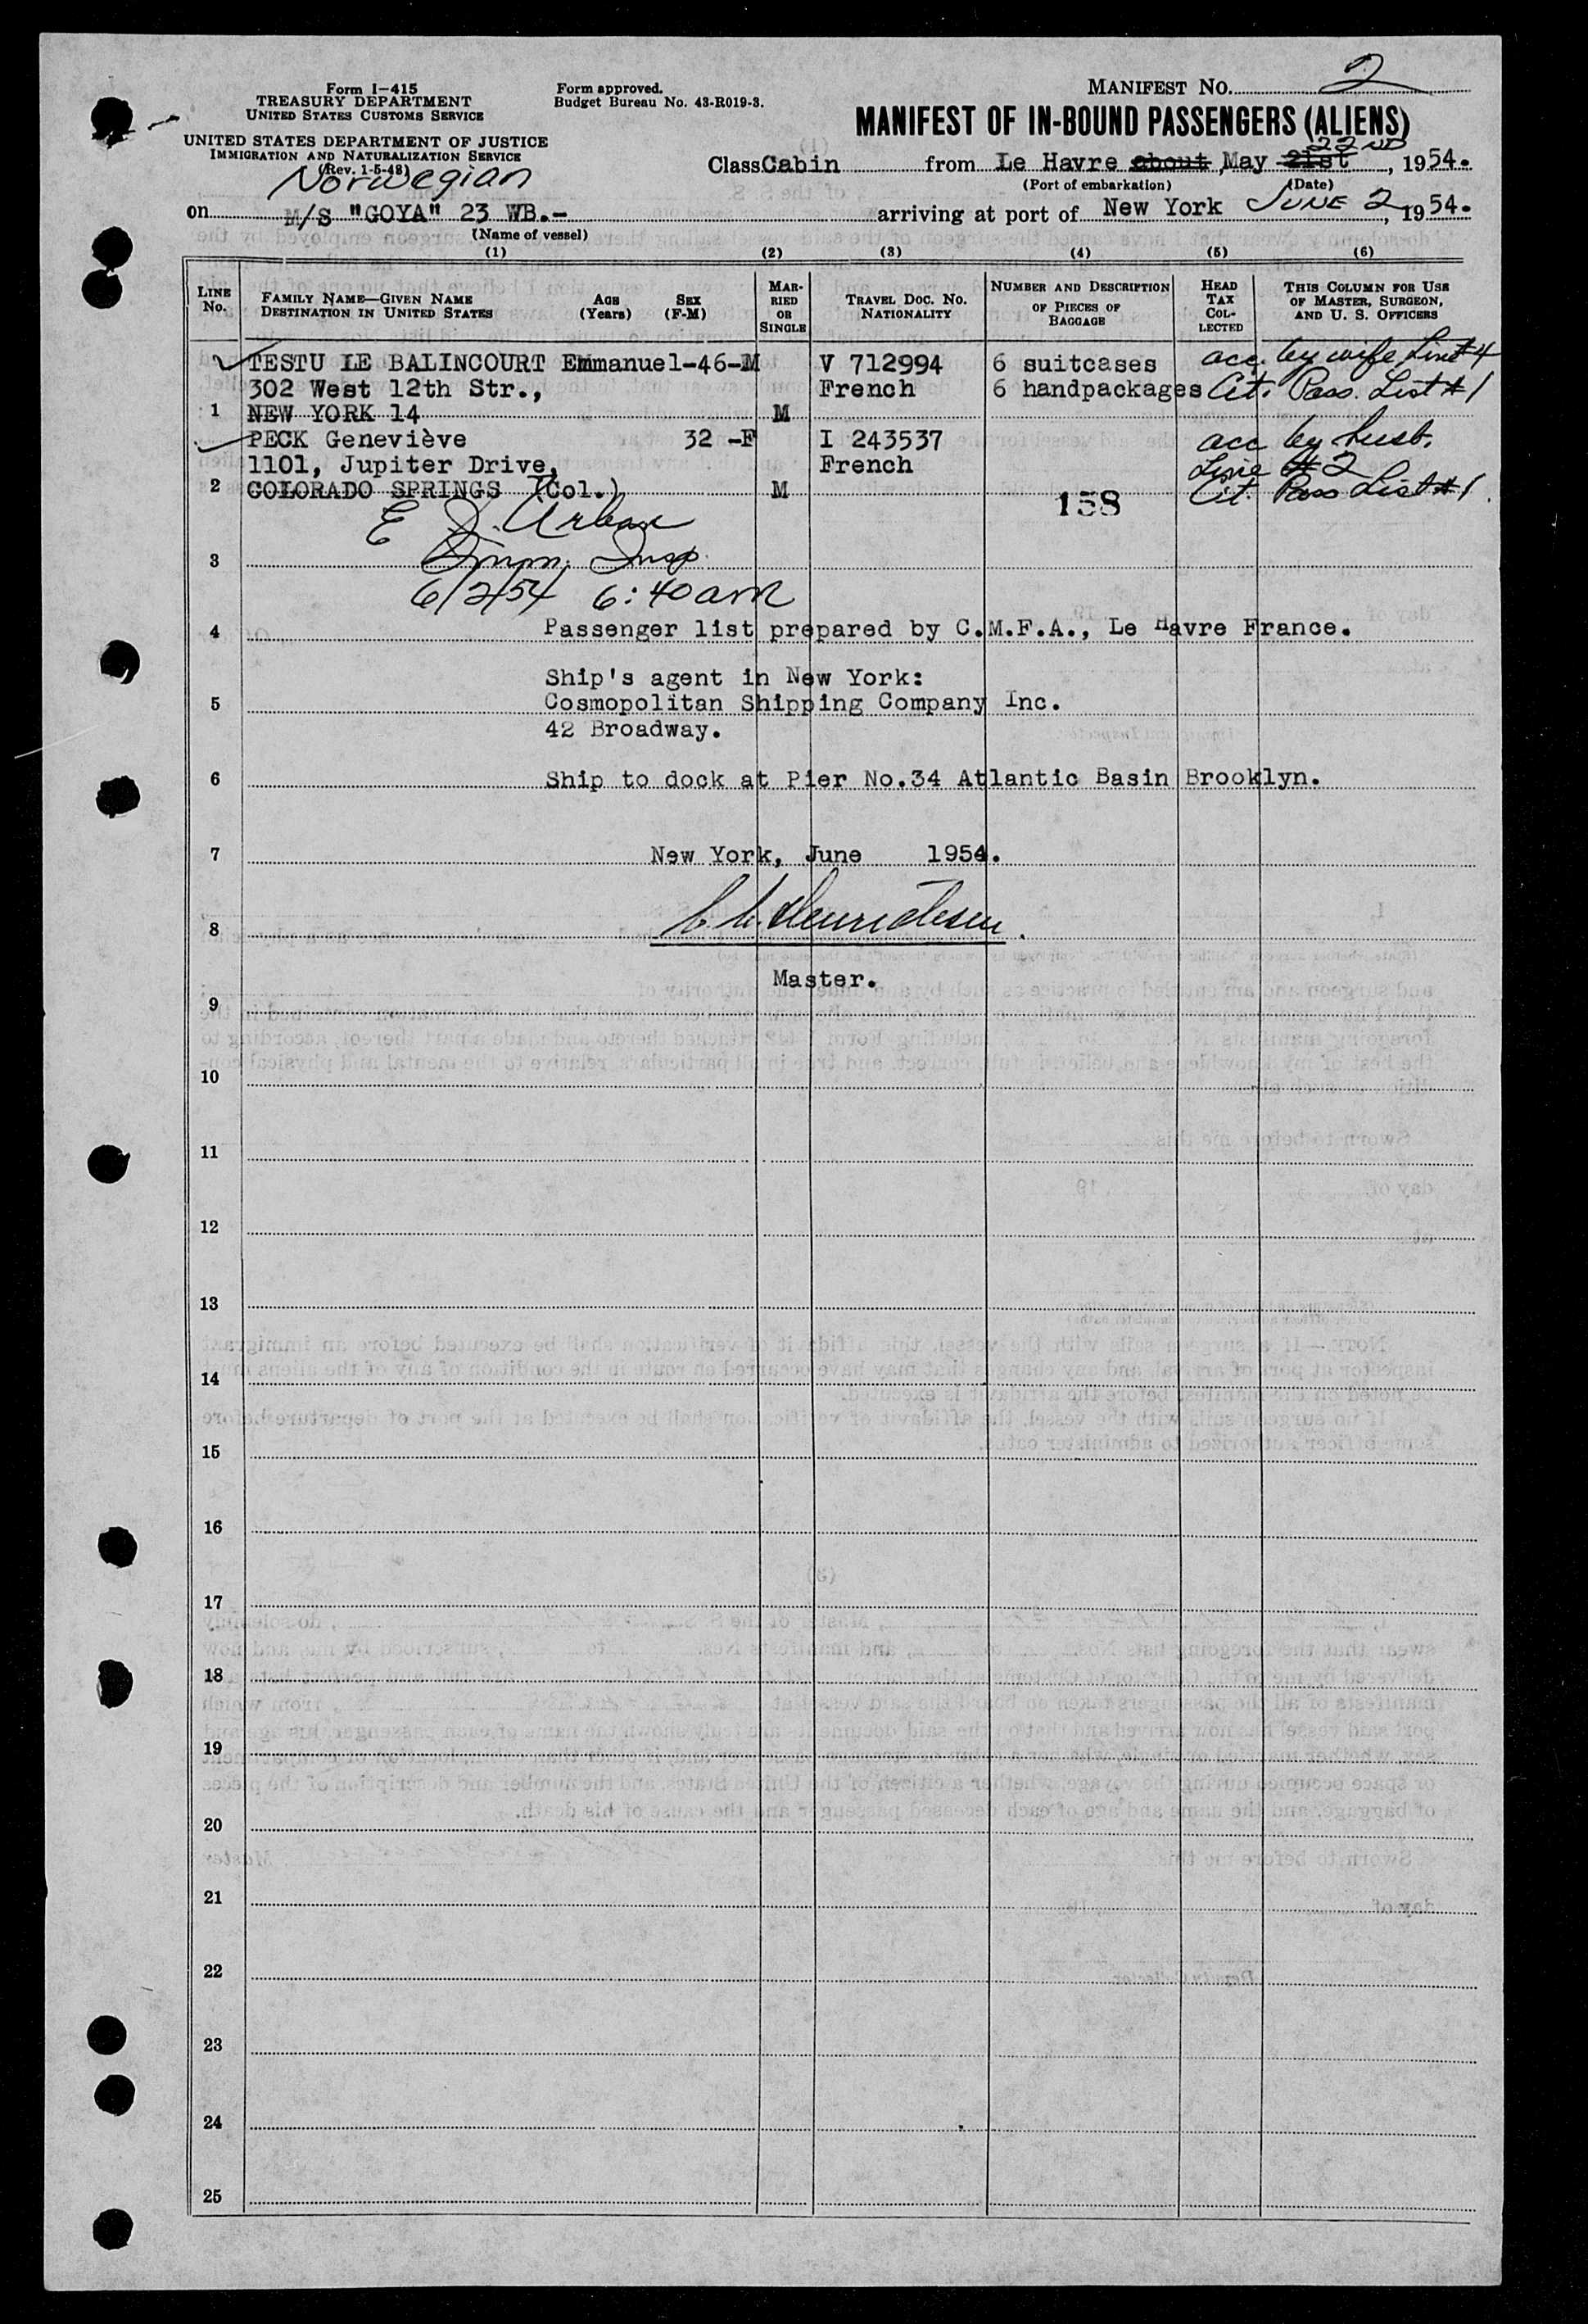 Form I-415
TREASURY DEPARTMENT
UNITED STATES CUSTOMS SERVICE
UNITED STATES DEPARTMENT OF JUSTICE
IMMIGRATION AND NATURALIZATION SERVICE
(Rev. 1-5-48)
Form approved.
Budget Bureau No. 43-R019-3.
MANIFEST NO. 2
MANIFEST OF IN-BOUND PASSENGERS (ALIENS)
22ND
Class Cabin from Le Havre about, May 21st, 1954.
(Port of embarkation) (Date)
Norwegian
on M/S "GOYA" 23 WB.- arriving at port of New York JUNE 2, 1954.
(Name of vessel)
(1) (2) (3) (4) (5) (6)
LINE No.
FAMILY NAME—GIVEN NAME AGE (Years) SEX (F-M)
DESTINATION IN UNITED STATES
MARRIED OR SINGLE
TRAVEL DOC. NO. NATIONALITY
NUMBER AND DESCRIPTION OF PIECES OF BAGGAGE
HEAD TAX COLLECTED
THIS COLUMN FOR USE OF MASTER, SURGEON, AND U. S. OFFICERS
TESTU LE BALINCOURT Emmanuel-46-M V 712994 6 suitcases acc. by wife Line #4
302 West 12th Str., French 6 handpackages Cit. Pass. List #1
1 NEW YORK 14 M
PECK Geneviève 32 -F I 243537 acc by husb.
1101, Jupiter Drive, French Line #2
2 COLORADO SPRINGS (Col.) M Cit. Pass List #1
158
E J. Urban
3 Imm. Insp.
6/2/54 6:40am
4 Passenger list prepared by C.M.F.A., Le Havre France.
Ship's agent in New York:
5 Cosmopolitan Shipping Company Inc.
42 Broadway.
6 Ship to dock at Pier No.34 Atlantic Basin Brooklyn.
7 New York, June 1954.
8
Master.
9
10
11
12
13
14
15
16
17
18
19
20
21
22
23
24
25